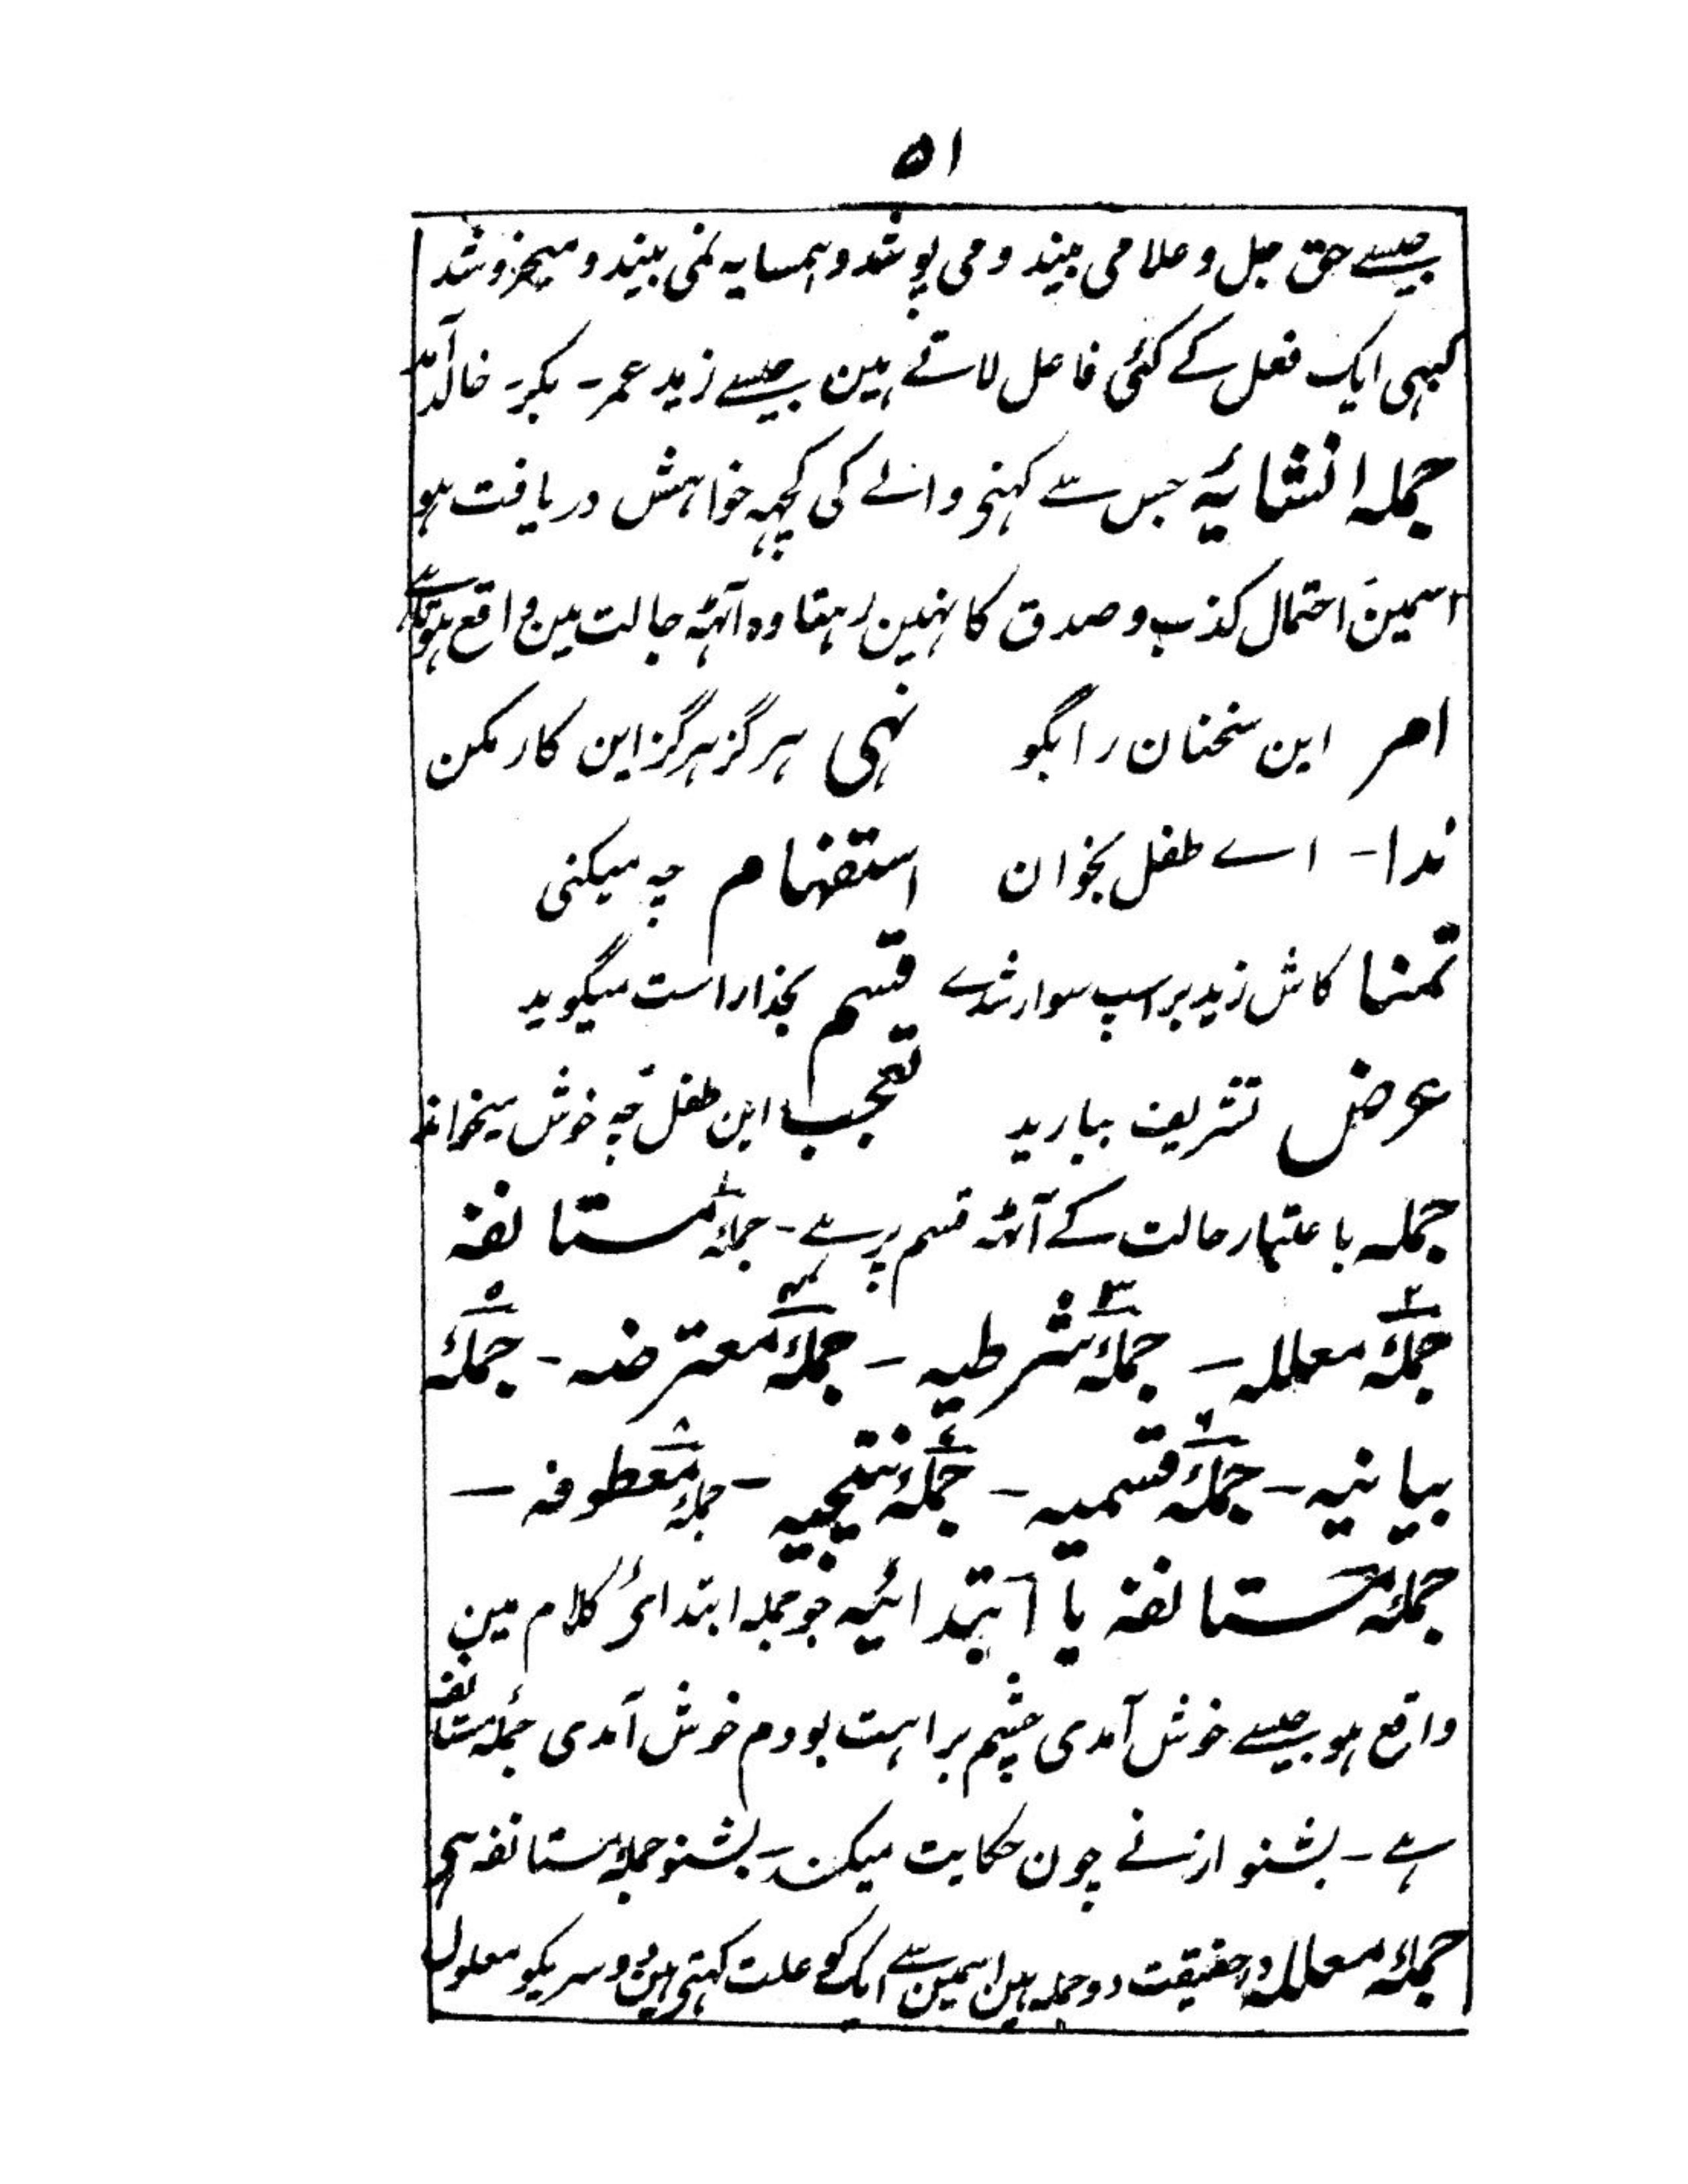 ۵۱
جیسے حق جل و علا می بیند و می پوشد و ہمسایہ نمی بیند و میخروشد
کبہی ایک فعل کے کئی فاعل لاتے ہین جیسے زید عمر - بکر - خالد آمد
جملہ انشائیہ جس سے کہنی والے کی کچہہ خواہش دریافت ہو
اسمین احتمال کذب و صدق کا نہین رہتا وہ آٹہہ حالت مین واقع ہوتا ہے
امر این سخنان را بگو نہی ہرگز ہرگز این کار مکن
ندا - اے طفل بخوان استفہام چہ میکنی
تمنا کاش زید بر اسپ سوار شدے قسم بخدا راست میگوید
عرض تشریف بیارید تعجب این طفل چہ خوش میخواند
جملہ باعتبار حالت کے آٹہہ قسم پر ہے - جملۂ ۱ مستانفہ
جملۂ ۲ معللہ - جملۂ ۳ شرطیہ - جملۂ ۴ معترضہ - جملۂ ۵
بیانیہ - جملۂ ۶ قسمیہ - جملۂ ۷ نتیجیہ - جملۂ ۸ معطوفہ -
جملۂ مستانفہ یا ابتدائیہ جو جملہ ابتدائ کلام مین
واقع ہو جیسے خوش آمدی چشم براہت بودم خوش آمدی جملۂ مستانفہ
ہے - بشنو از نے چون حکایت میکند - بشنو جملۂ مستانفہ ہی
جملۂ معللہ درحقیقت دو جملہ ہین اسمین سے ایک کو علت کہتی ہین دوسریکو معلول